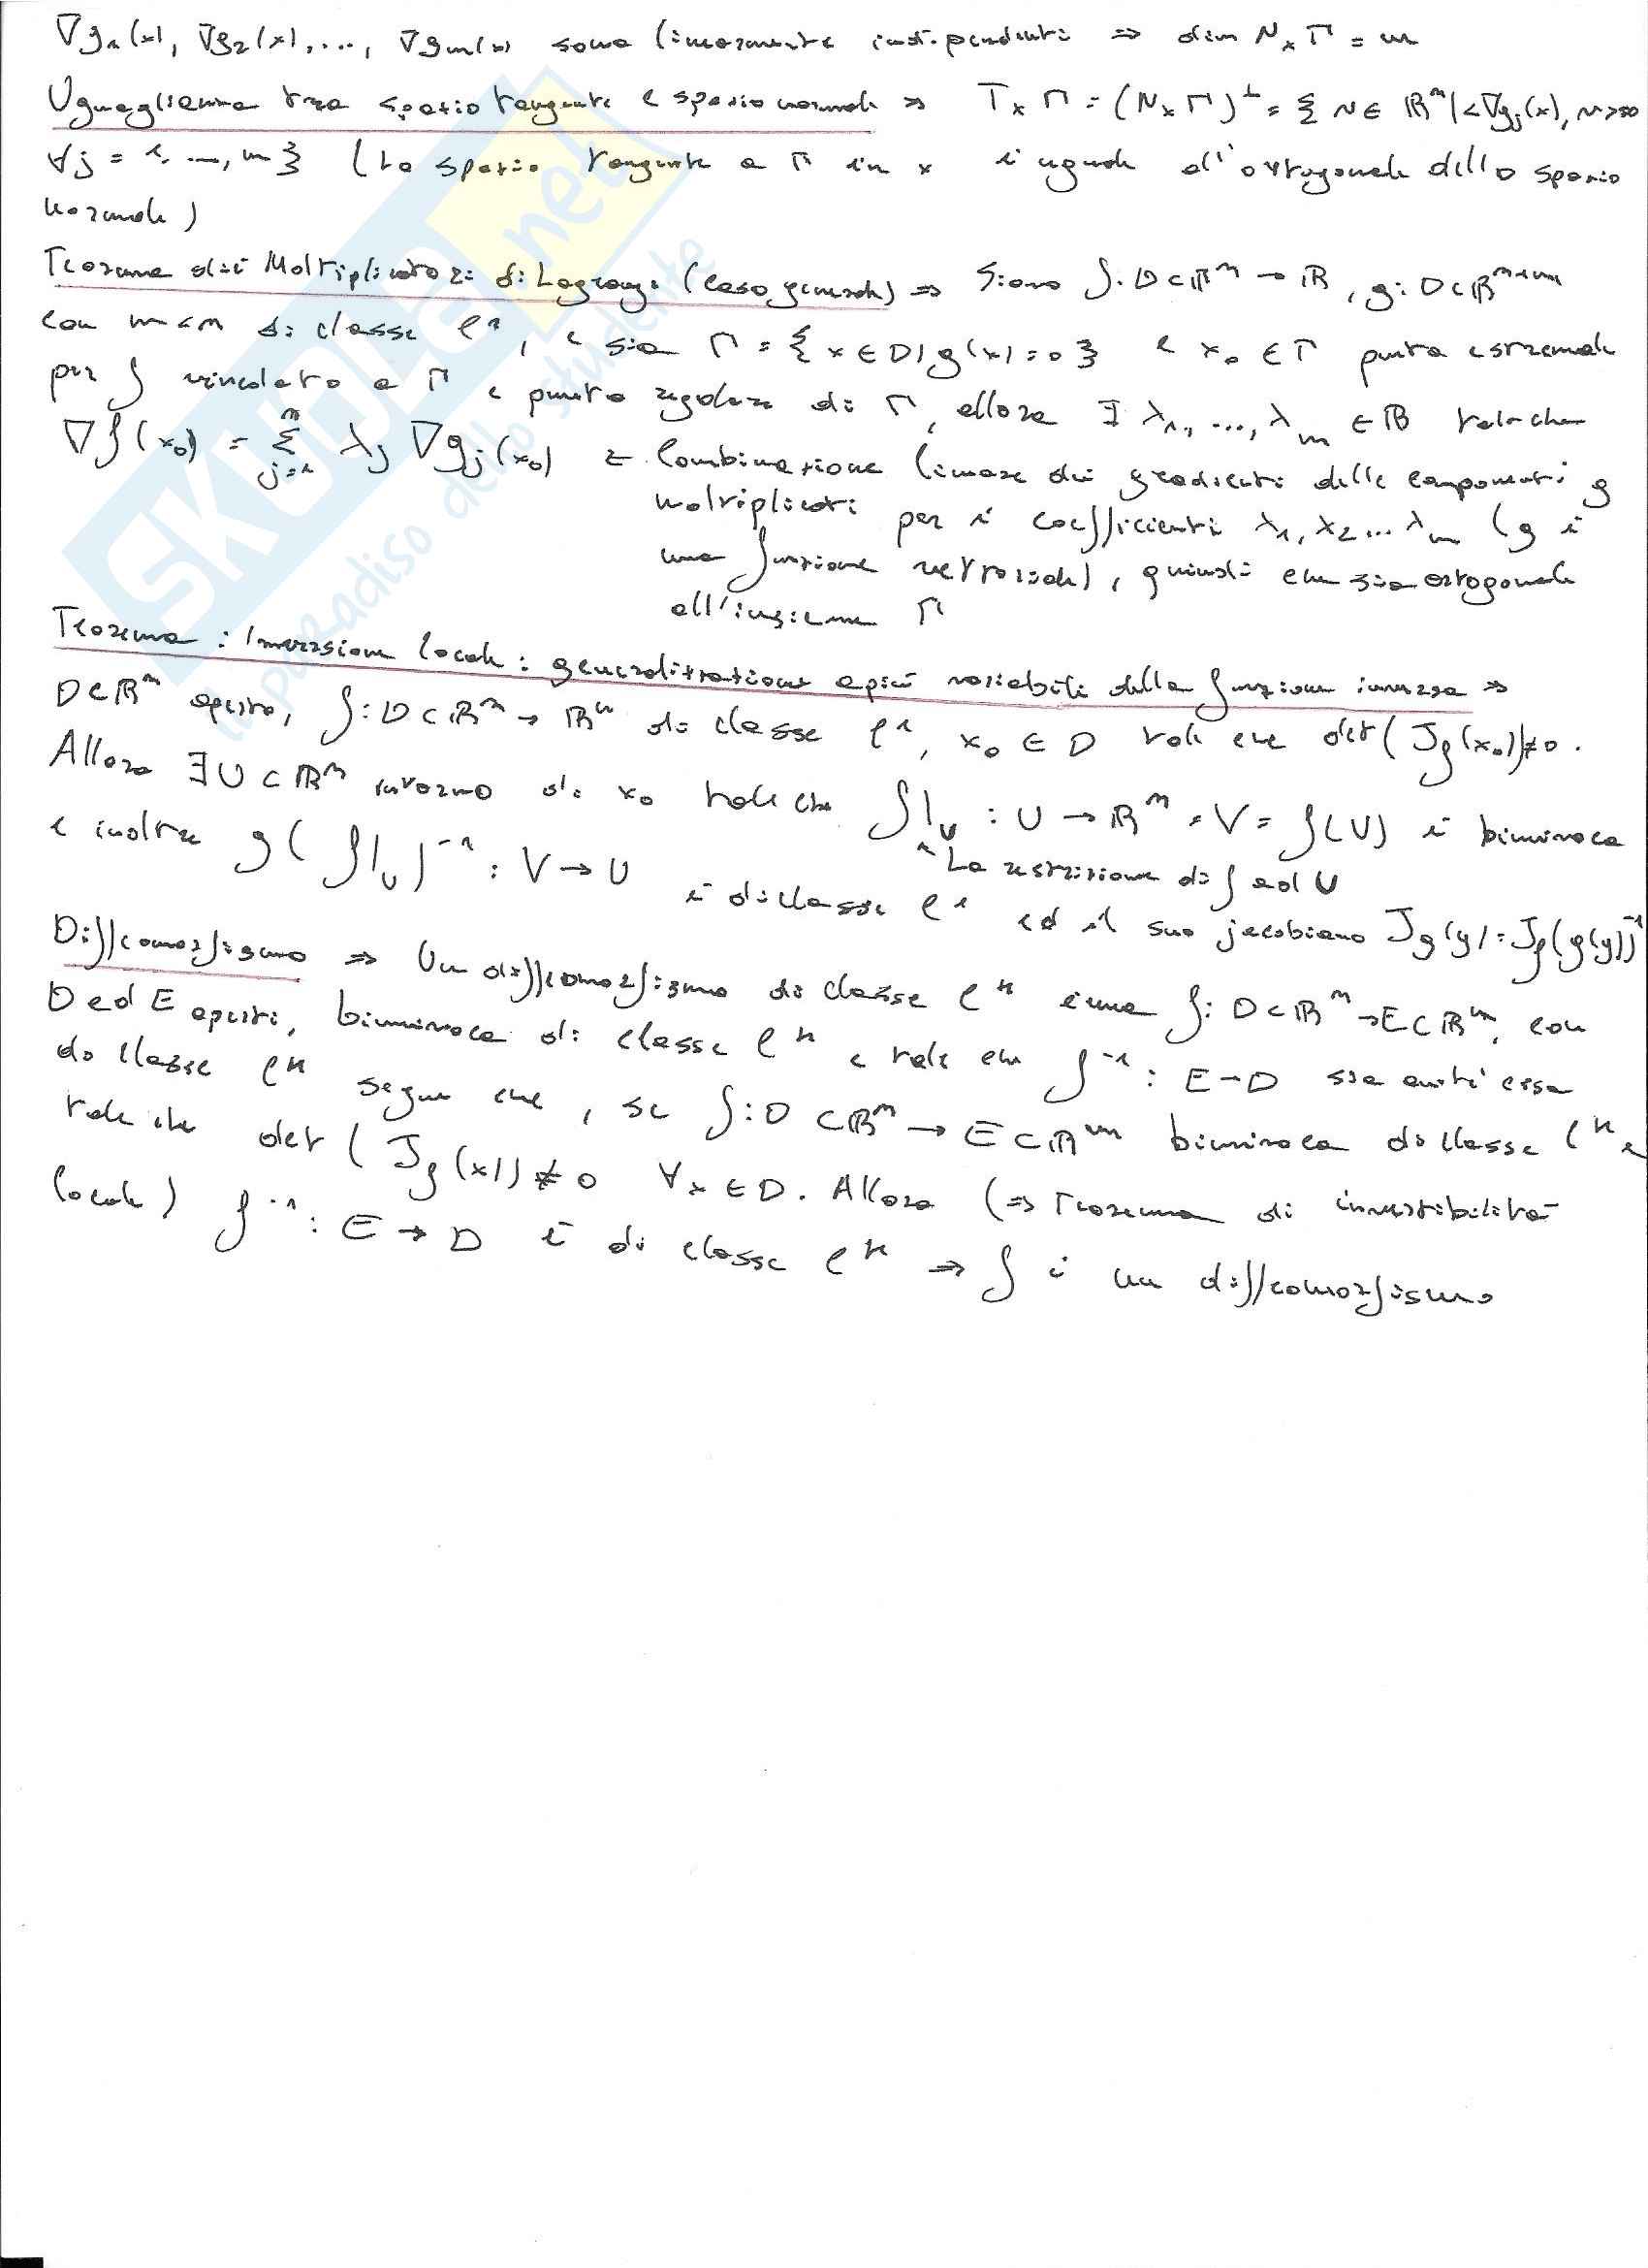 ∇g₁(x), ∇g₂(x), ..., ∇gm(x) sono linearmente indipendenti ⇒ dim NₓΓ = m
Uguaglianza tra spazio tangente e spazio normale ⇒ TₓΓ = (NₓΓ)^⊥ = { v ∈ ℝⁿ | <∇gⱼ(x), v>=0
∀j = 1, ..., m } (Lo spazio tangente a Γ in x è uguale all'ortogonale dello spazio
normale)
Teorema dei Moltiplicatori di Lagrange (caso generale) ⇒ Siano f: D⊂ℝⁿ → ℝ, g: D⊂ℝⁿ→m
con m<n di classe C¹, e sia Γ = { x ∈ D | g(x)=0 } e x₀ ∈ Γ punto estremale
per f vincolato a Γ e punto regolare di Γ, allora ∃ λ₁, ..., λm ∈ ℝ tale che
∇f(x₀) = Σ_{j=1}^{m} λⱼ ∇gⱼ(x₀) = Combinazione lineare dei gradienti delle componenti g
moltiplicati per i coefficienti λ₁, λ₂ ... λm (g è
una funzione vettoriale), quindi che sia ortogonale
all'insieme Γ
Teorema: Inversione locale: generalizzazione a più variabili della funzione inversa ⇒
D⊂ℝⁿ aperto, f: D⊂ℝⁿ → ℝⁿ di classe C¹, x₀ ∈ D tale che det(Jf(x₀))≠0.
Allora ∃U⊂ℝⁿ intorno di x₀ tale che f|_U : U → ℝⁿ = V = f(U) è biunivoca
^La restrizione di f ad U
e inoltre g(f|_U)⁻¹ : V → U è di classe C¹ ed il suo jacobiano Jg(y) = Jf(g(y))⁻¹
Diffeomorfismo ⇒ Un diffeomorfismo di classe Cᵏ è una f: D⊂ℝⁿ → E⊂ℝⁿ, con
D ed E aperti, biunivoca di classe Cᵏ e tale che f⁻¹ : E → D sia anch'essa
di classe Cᵏ segue che, se f: D⊂ℝⁿ → E⊂ℝⁿ biunivoca di classe Cᵏ e
tale che det (Jf(x)) ≠ 0 ∀x ∈ D. Allora (⇒ Teorema di invertibilità
locale) f⁻¹ : E → D è di classe Cᵏ ⇒ f è un diffeomorfismo
SKUOLA.net
il paradiso dello studente